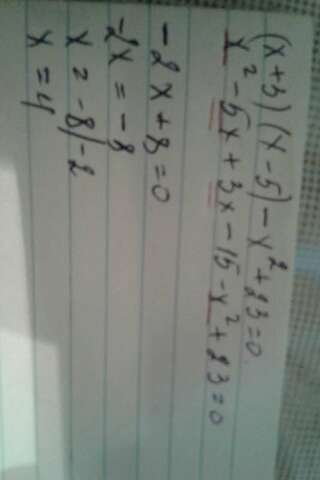 (x+3)(x-5)-x²+23=0
x²-5x+3x-15-x²+23=0
-2x+8=0
-2x=-8
x=-8/-2
x=4